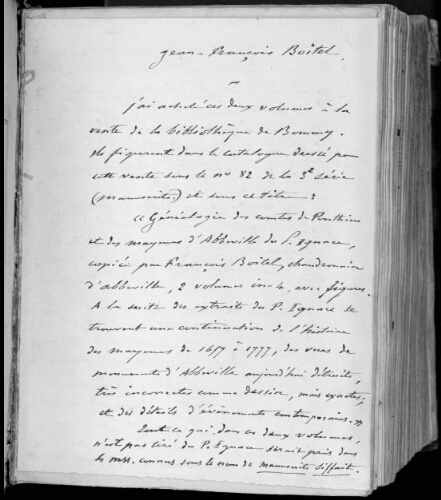 Jean-François Boitel.
J'ai acheté ces deux volumes à la
vente de la bibliothèque de Bommy.
Ils figurent dans le catalogue dressé pour
cette vente sous le no 82 de la 3e série
(manuscrits) et sous ce titre :
« Généalogie des comtes de Ponthieu
et des mayeurs d'Abbeville du P. Ignace,
copiée par François Boitel, chaudronnier
d'abbeville, 2 volumes in-4, avec figures.
A la suite des extraits du P. Ignace se
trouvent une continuation de l'histoire
des mayeurs de 1657 à 1777, des vues de
monuments d'Abbeville aujourd'hui détruits,
très incorrectes comme dessin, mais exactes,
et des détails d'événements contemporains. »
Tout ce qui, dans ces deux volumes,
n'est pas tiré du P. Ignace serait pris dans
les mss. connus sous le nom de manuscrits Siffait.